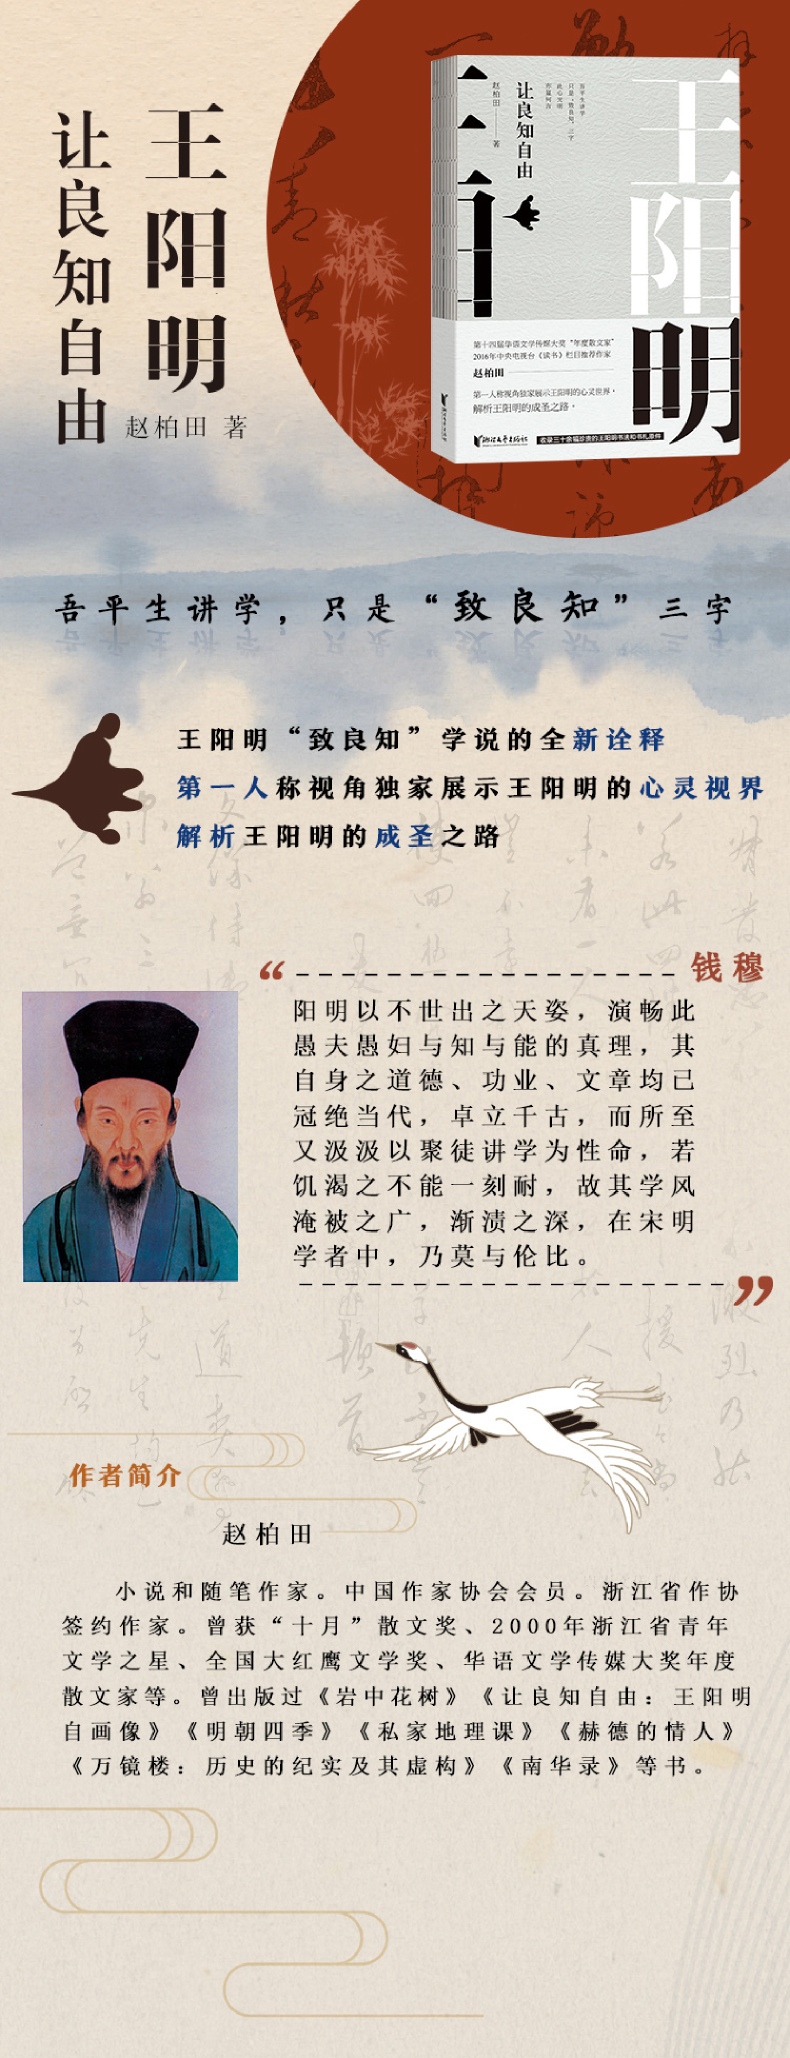 王阳明
让良知自由
赵柏田 著
王阳明
让良知自由
赵柏田 著
吾平生讲学
只是“致良知”三字
此心光明
亦复何言
第十四届华语文学传媒大奖“年度散文家”
2016年中央电视台《读书》栏目推荐作家
赵柏田
第一人称视角独家展示王阳明的心灵世界，
解析王阳明的成圣之路。
浙江文艺出版社
收录三十余幅珍贵的王阳明书法和书札原件
吾平生讲学，只是“致良知”三字
王阳明“致良知”学说的全新诠释
第一人称视角独家展示王阳明的心灵视界
解析王阳明的成圣之路
“ 钱穆
阳明以不世出之天姿，演畅此
愚夫愚妇与知与能的真理，其
自身之道德、功业、文章均已
冠绝当代，卓立千古，而所至
又汲汲以聚徒讲学为性命，若
饥渴之不能一刻耐，故其学风
淹被之广，渐渍之深，在宋明
学者中，乃莫与伦比。
”
作者简介
赵柏田
小说和随笔作家。中国作家协会会员。浙江省作协
签约作家。曾获“十月”散文奖、2000年浙江省青年
文学之星、全国大红鹰文学奖、华语文学传媒大奖年度
散文家等。曾出版过《岩中花树》《让良知自由：王阳明
自画像》《明朝四季》《私家地理课》《赫德的情人》
《万镜楼：历史的纪实及其虚构》《南华录》等书。